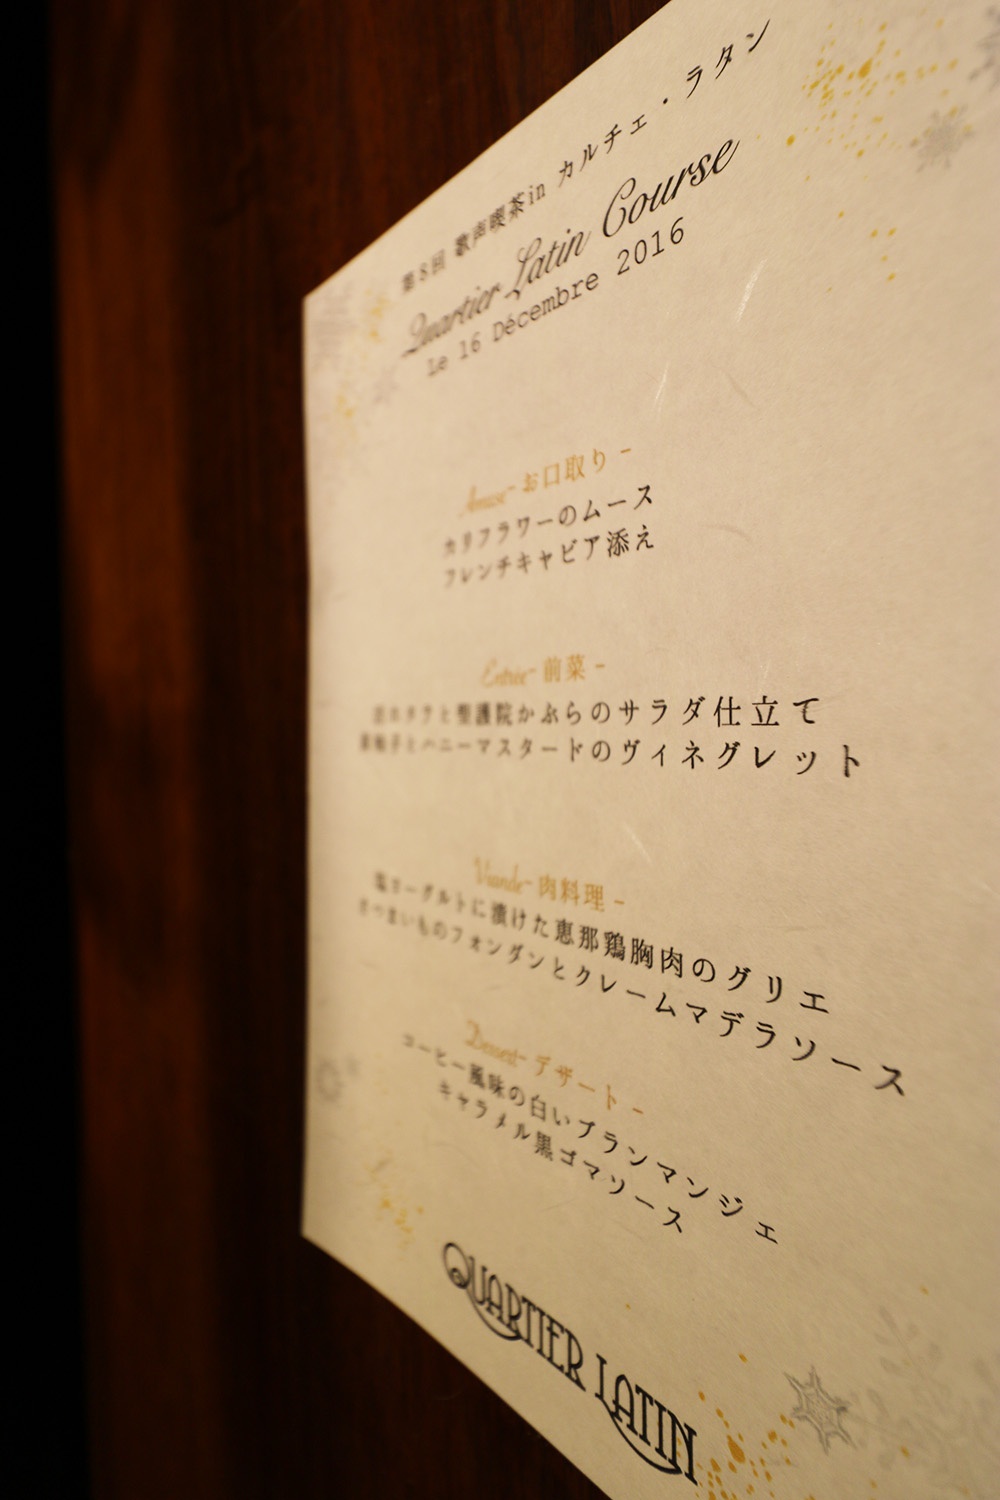 第8回 歌声喫茶in カルチェ・ラタン
Quartier Latin Course
Le 16 Décembre 2016
Amuse- お口取り -
カリフラワーのムース
フレンチキャビア添え
Entrée- 前菜 -
ホタテと聖護院かぶらのサラダ仕立て
柚子とハニーマスタードのヴィネグレット
Viande- 肉料理 -
塩ヨーグルトに漬けた恵那鶏胸肉のグリエ
さつまいものフォンダンとクレームマデラソース
Dessert- デザート -
コーヒー風味の白いブランマンジェ
キャラメル黒ゴマソース
QUARTIER LATIN